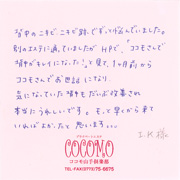 背中のニキビ、ニキビ跡、でずっと悩んでいました。
別のエステに通っていたが HPで、ココモさんで
「背中がキレイになった!」と見て、1ヶ月前から
ココモさんでお世話になり、
気になっていた背中もだいぶ改善され
本当にうれしいです。もっと早くから来て
いればよかったと思います…。
I.K 様
COCOMO
ココモ山手倶楽部